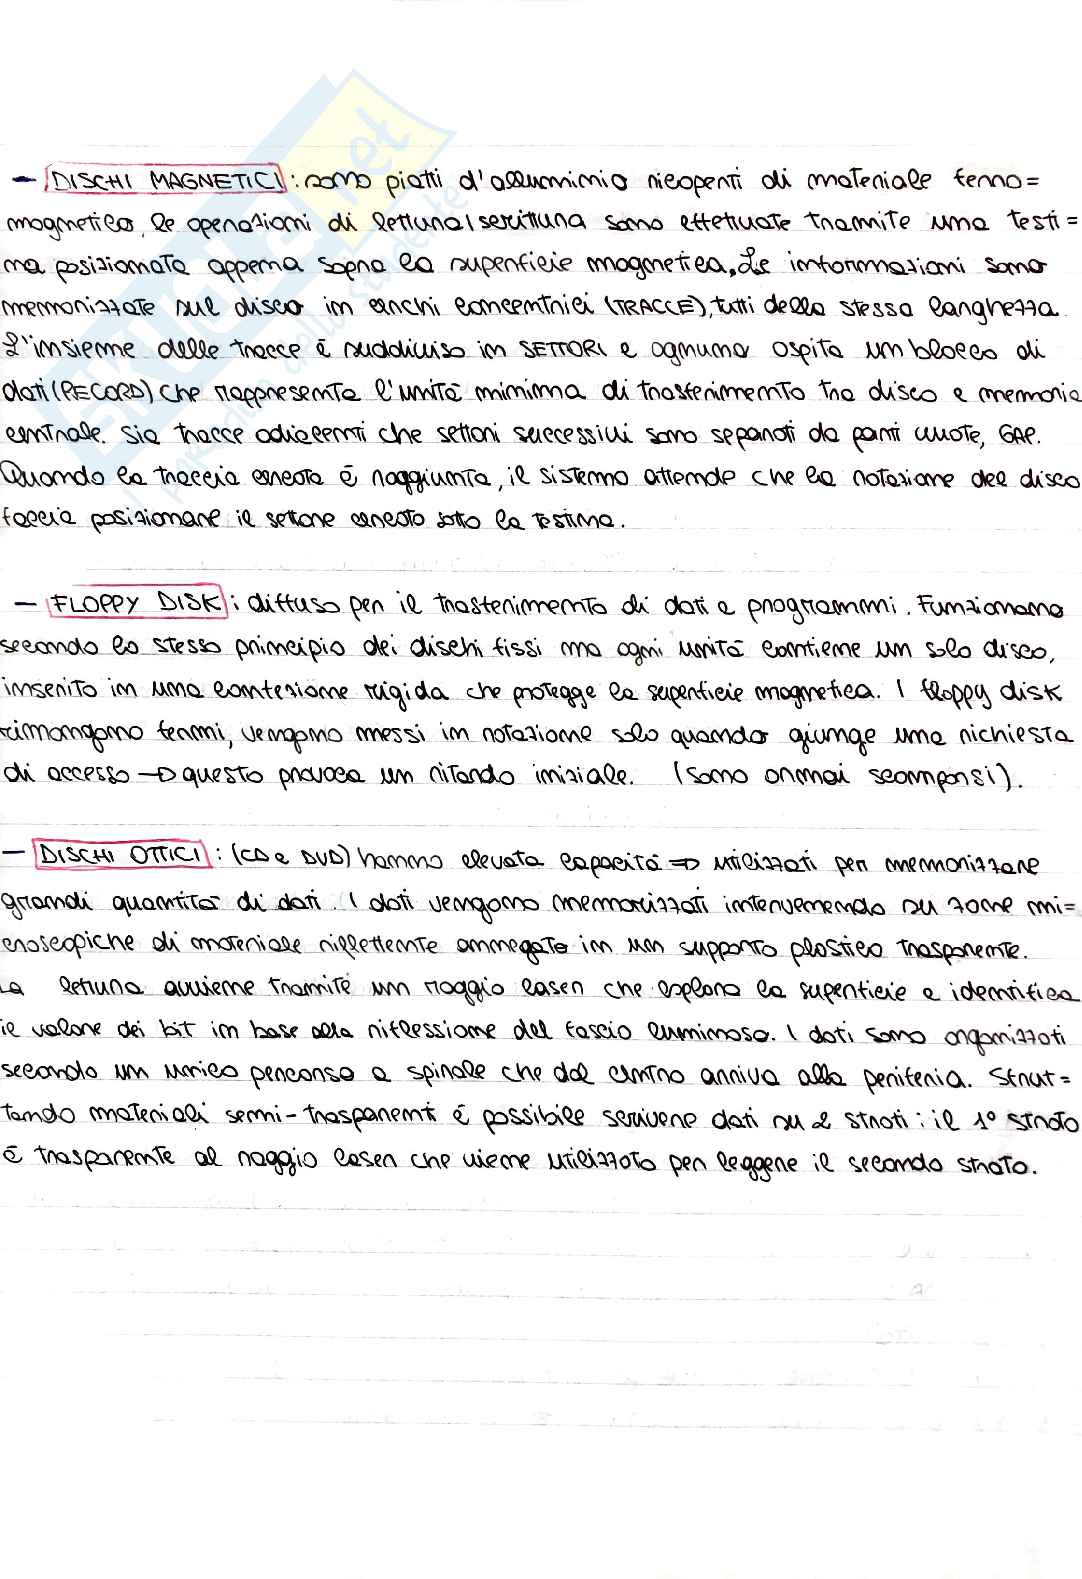 SKUOLA.net
- DISCHI MAGNETICI : sono piatti d'alluminio ricoperti di materiale ferro=
magnetico. Le operazioni di lettura/scrittura sono effettuate tramite una testi=
na posizionata appena sopra la superficie magnetica. Le informazioni sono
memorizzate sul disco in cerchi concentrici (TRACCE), tutti della stessa larghezza.
L'insieme delle tracce è suddiviso in SETTORI e ognuno ospita un blocco di
dati (RECORD) che rappresenta l'unità minima di trasferimento tra disco e memoria
centrale. Sia tracce adiacenti che settori successivi sono separati da parti vuote, GAP.
Quando la traccia cercata è raggiunta, il sistema attende che la rotazione del disco
faccia posizionare il settore cercato sotto la testina.
- FLOPPY DISK : diffuso per il trasferimento di dati e programmi. Funzionano
secondo lo stesso principio dei dischi fissi ma ogni unità contiene un solo disco,
inserito in una confezione rigida che protegge la superficie magnetica. I floppy disk
rimangono fermi, vengono messi in rotazione solo quando giunge una richiesta
di accesso → questo provoca un ritardo iniziale. (sono ormai scomparsi).
- DISCHI OTTICI : (CD e DVD) hanno elevata capacità ⇒ utilizzati per memorizzare
grandi quantità di dati. I dati vengono memorizzati intervenendo su zone mi=
croscopiche di materiale riflettente annegate in un supporto plastico trasparente.
La lettura avviene tramite un raggio laser che esplora la superficie e identifica
il valore dei bit in base alla riflessione del fascio luminoso. I dati sono organizzati
secondo un unico percorso a spirale che dal centro arriva alla periferia. Sfrut=
tando materiali semi-trasparenti è possibile scrivere dati su 2 strati : il 1° strato
è trasparente al raggio laser che viene utilizzato per leggere il secondo strato.